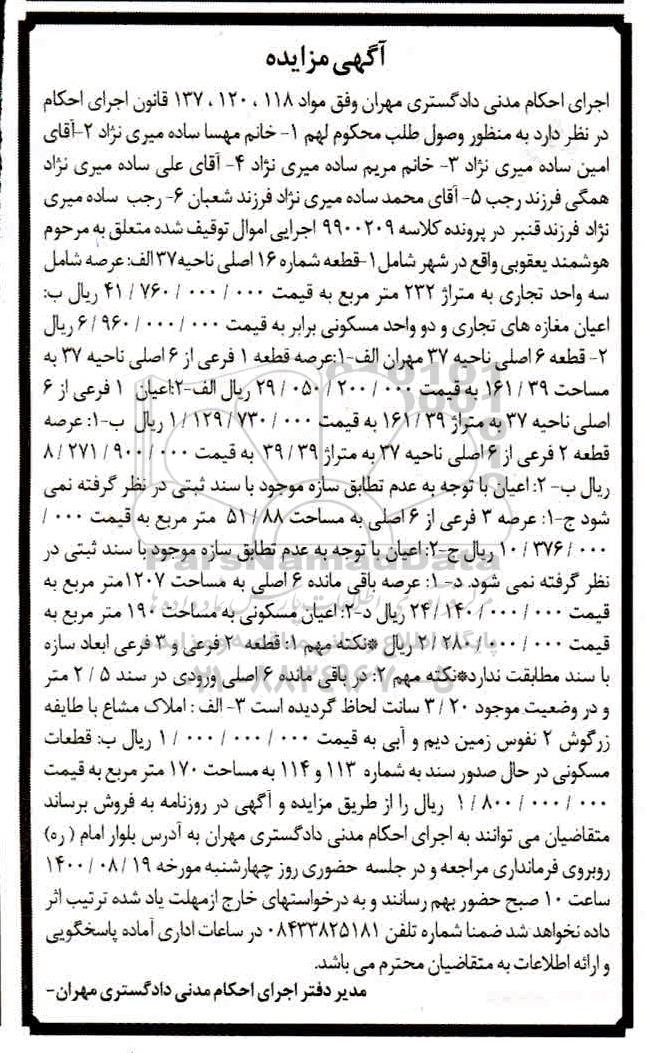 آگهی مزایده
اجرای احکام مدنی دادگستری مهران وفق مواد ۱۱۸ ، ۱۲۰ ، ۱۳۷ قانون اجرای احکام
در نظر دارد به منظور وصول طلب محکوم لهم ۱- خانم مهسا ساده میری نژاد ۲-آقای
امین ساده میری نژاد ۳- خانم مریم ساده میری نژاد ۴- آقای علی ساده میری نژاد
همگی فرزند رجب ۵- آقای محمد ساده میری نژاد فرزند شعبان ۶- رجب ساده میری
نژاد فرزند قنبر در پرونده کلاسه ۹۹۰۰۲۰۹ اجرایی اموال توقیف شده متعلق به مرحوم
هوشمند یعقوبی واقع در شهر شامل۱-قطعه شماره ۱۶ اصلی ناحیه۳۷ الف: عرصه شامل
سه واحد تجاری به متراژ ۲۳۲ متر مربع به قیمت ۰۰۰/ ۰۰۰/ ۷۶۰/ ۴۱ ریال ب:
اعیان مغازه های تجاری و دو واحد مسکونی برابر به قیمت ۰۰۰/ ۰۰۰/ ۹۶۰/ ۶ ریال
۲- قطعه ۶ اصلی ناحیه ۳۷ مهران الف-۱:عرصه قطعه ۱ فرعی از ۶ اصلی ناحیه ۳۷ به
مساحت ۳۹/ ۱۶۱ به قیمت ۰۰۰/ ۲۰۰/ ۰۵۰/ ۲۹ ریال الف-۲:اعیان ۱ فرعی از ۶
اصلی ناحیه ۳۷ به متراژ ۳۹/ ۱۶۱ به قیمت ۰۰۰/ ۷۳۰/ ۱۲۹/ ۱ ریال ب-۱: عرصه
قطعه ۲ فرعی از ۶ اصلی ناحیه ۳۷ به متراژ ۳۹/ ۳۹ به قیمت ۰۰۰/ ۹۰۰/ ۲۷۱/ ۸
ریال ب- ۲: اعیان با توجه به عدم تطابق سازه موجود با سند ثبتی در نظر گرفته نمی
شود ج-۱: عرصه ۳ فرعی از ۶ اصلی به مساحت ۸۸/ ۵۱ متر مربع به قیمت ۰۰۰/
۰۰۰/ ۳۷۶/ ۱۰ ریال ج-۲: اعیان با توجه به عدم تطابق سازه موجود با سند ثبتی در
نظر گرفته نمی شود. د-۱: عرصه باقی مانده ۶ اصلی به مساحت ۱۲۰۷متر مربع به
قیمت ۰۰۰/ ۰۰۰/ ۱۴۰/ ۲۴ ریال د-۲: اعیان مسکونی به مساحت ۱۹۰ متر مربع به
قیمت ۰۰۰/ ۰۰۰/ ۲۸۰/ ۲ ریال *نکته مهم ۱: قطعه ۲ فرعی و ۳ فرعی ابعاد سازه
با سند مطابقت ندارد*نکته مهم ۲: در باقی مانده ۶ اصلی ورودی در سند ۵/ ۲ متر
و در وضعیت موجود ۲۰/ ۳ سانت لحاظ گردیده است ۳- الف : املاک مشاع با طایفه
زرگوش ۲ نفوس زمین دیم و آبی به قیمت ۰۰۰/ ۰۰۰/ ۰۰۰/ ۱ ریال ب: قطعات
مسکونی در حال صدور سند به شماره ۱۱۳ و ۱۱۴ به مساحت ۱۷۰ متر مربع به قیمت
۰۰۰/ ۰۰۰/ ۸۰۰/ ۱ ریال را از طریق مزایده و آگهی در روزنامه به فروش برساند
متقاضیان می توانند به اجرای احکام مدنی دادگستری مهران به آدرس بلوار امام (ره)
روبروی فرمانداری مراجعه و در جلسه حضوری روز چهارشنبه مورخه ۱۹/ ۰۸/ ۱۴۰۰
ساعت ۱۰ صبح حضور بهم رسانند و به درخواستهای خارج ازمهلت یاد شده ترتیب اثر
داده نخواهد شد ضمنا شماره تلفن ۰۸۴۳۳۸۲۵۱۸۱ در ساعات اداری آماده پاسخگویی
و ارائه اطلاعات به متقاضیان محترم می باشد.
مدیر دفتر اجرای احکام مدنی دادگستری مهران-
ParsNamadData